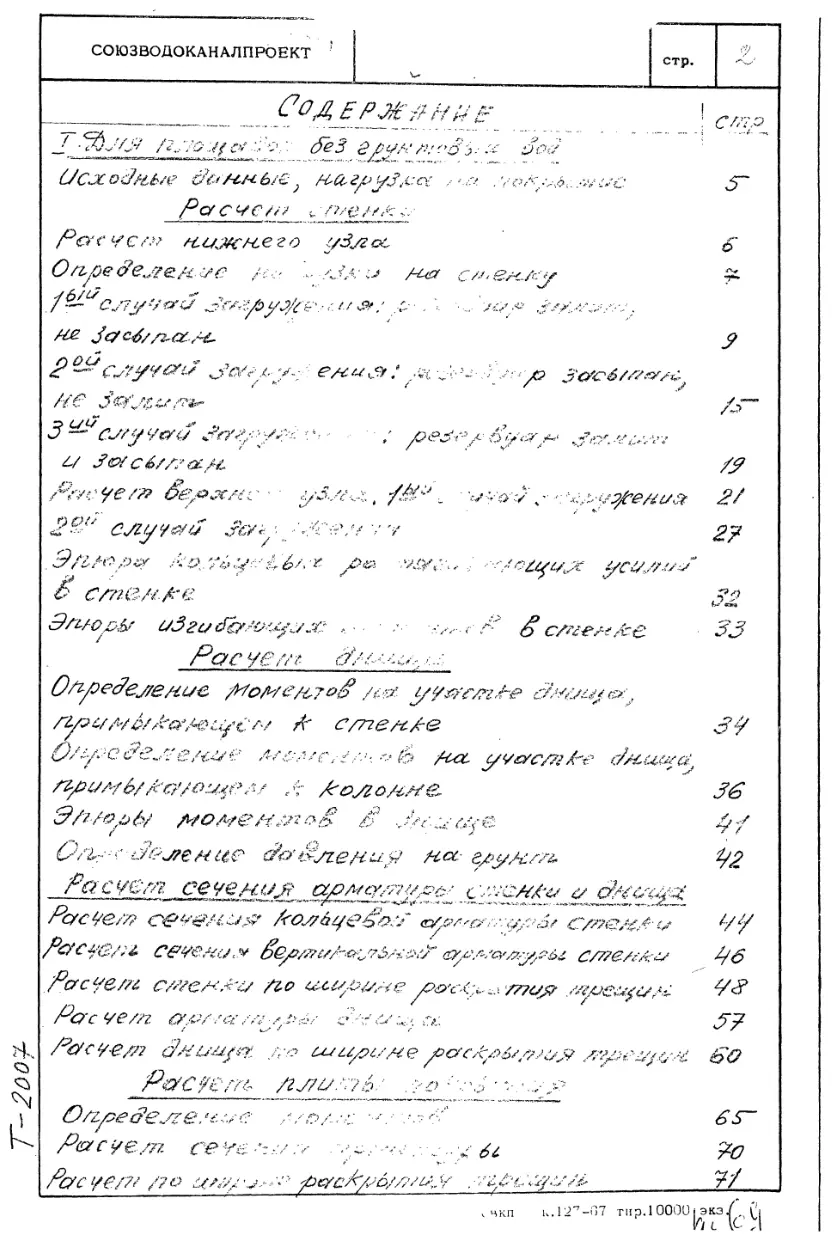 СОЮЗВОДОКАНАЛПРОЕКТ
стр. 2
СОДЕРЖАНИЕ стр
I. Для площадок без грунтовых вод
Исходные данные, нагрузка на покрытие 5
Расчет стенки
Расчет нижнего узла 6
Определение нагрузки на стенку 7
1ый случай загружения: резервуар залит,
не засыпан 9
2ой случай загружения: резервуар засыпан,
не залит 15
3ий случай загружения: резервуар залит
и засыпан 19
Расчет верхнего узла, 1ый случай загружения 21
2ой случай загружения 27
Эпюра кольцевых растягивающих усилий
в стенке 32
Эпюры изгибающих моментов в стенке 33
Расчет днища
Определение моментов на участке днища,
примыкающем к стенке 34
Определение моментов на участке днища,
примыкающем к колонне 36
Эпюры моментов в днище 41
Определение давления на грунт 42
Расчет сечения арматуры стенки и днища
Расчет сечения кольцевой арматуры стенки 44
Расчет сечения вертикальной арматуры стенки 46
Расчет стенки по ширине раскрытия трещин 48
Расчет арматуры днища 57
Расчет днища по ширине раскрытия трещин 60
Расчет плиты покрытия
Определение моментов 65
Расчет сечения арматуры 70
Расчет по ширине раскрытия трещин 71
Т-2007
к.127-67 тир.10000 экз.